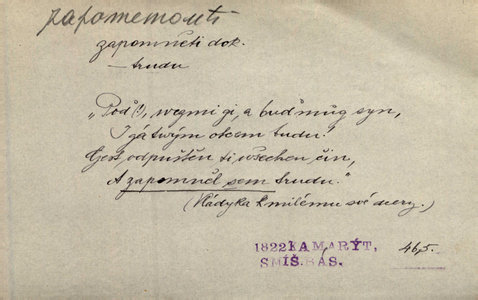 zapomenouti
zapomněti dok.
— trudu
„Poď (!), wezmi gi, a buď můg syn,
I gá twým otcem budu!
Gest odpuštěn ti wšechen čin,
A zapomněl sem trudu."
(Vládyka k milému své dcery.)
1822 KAMARÝT, 465.
SMÍŠ. BÁS.